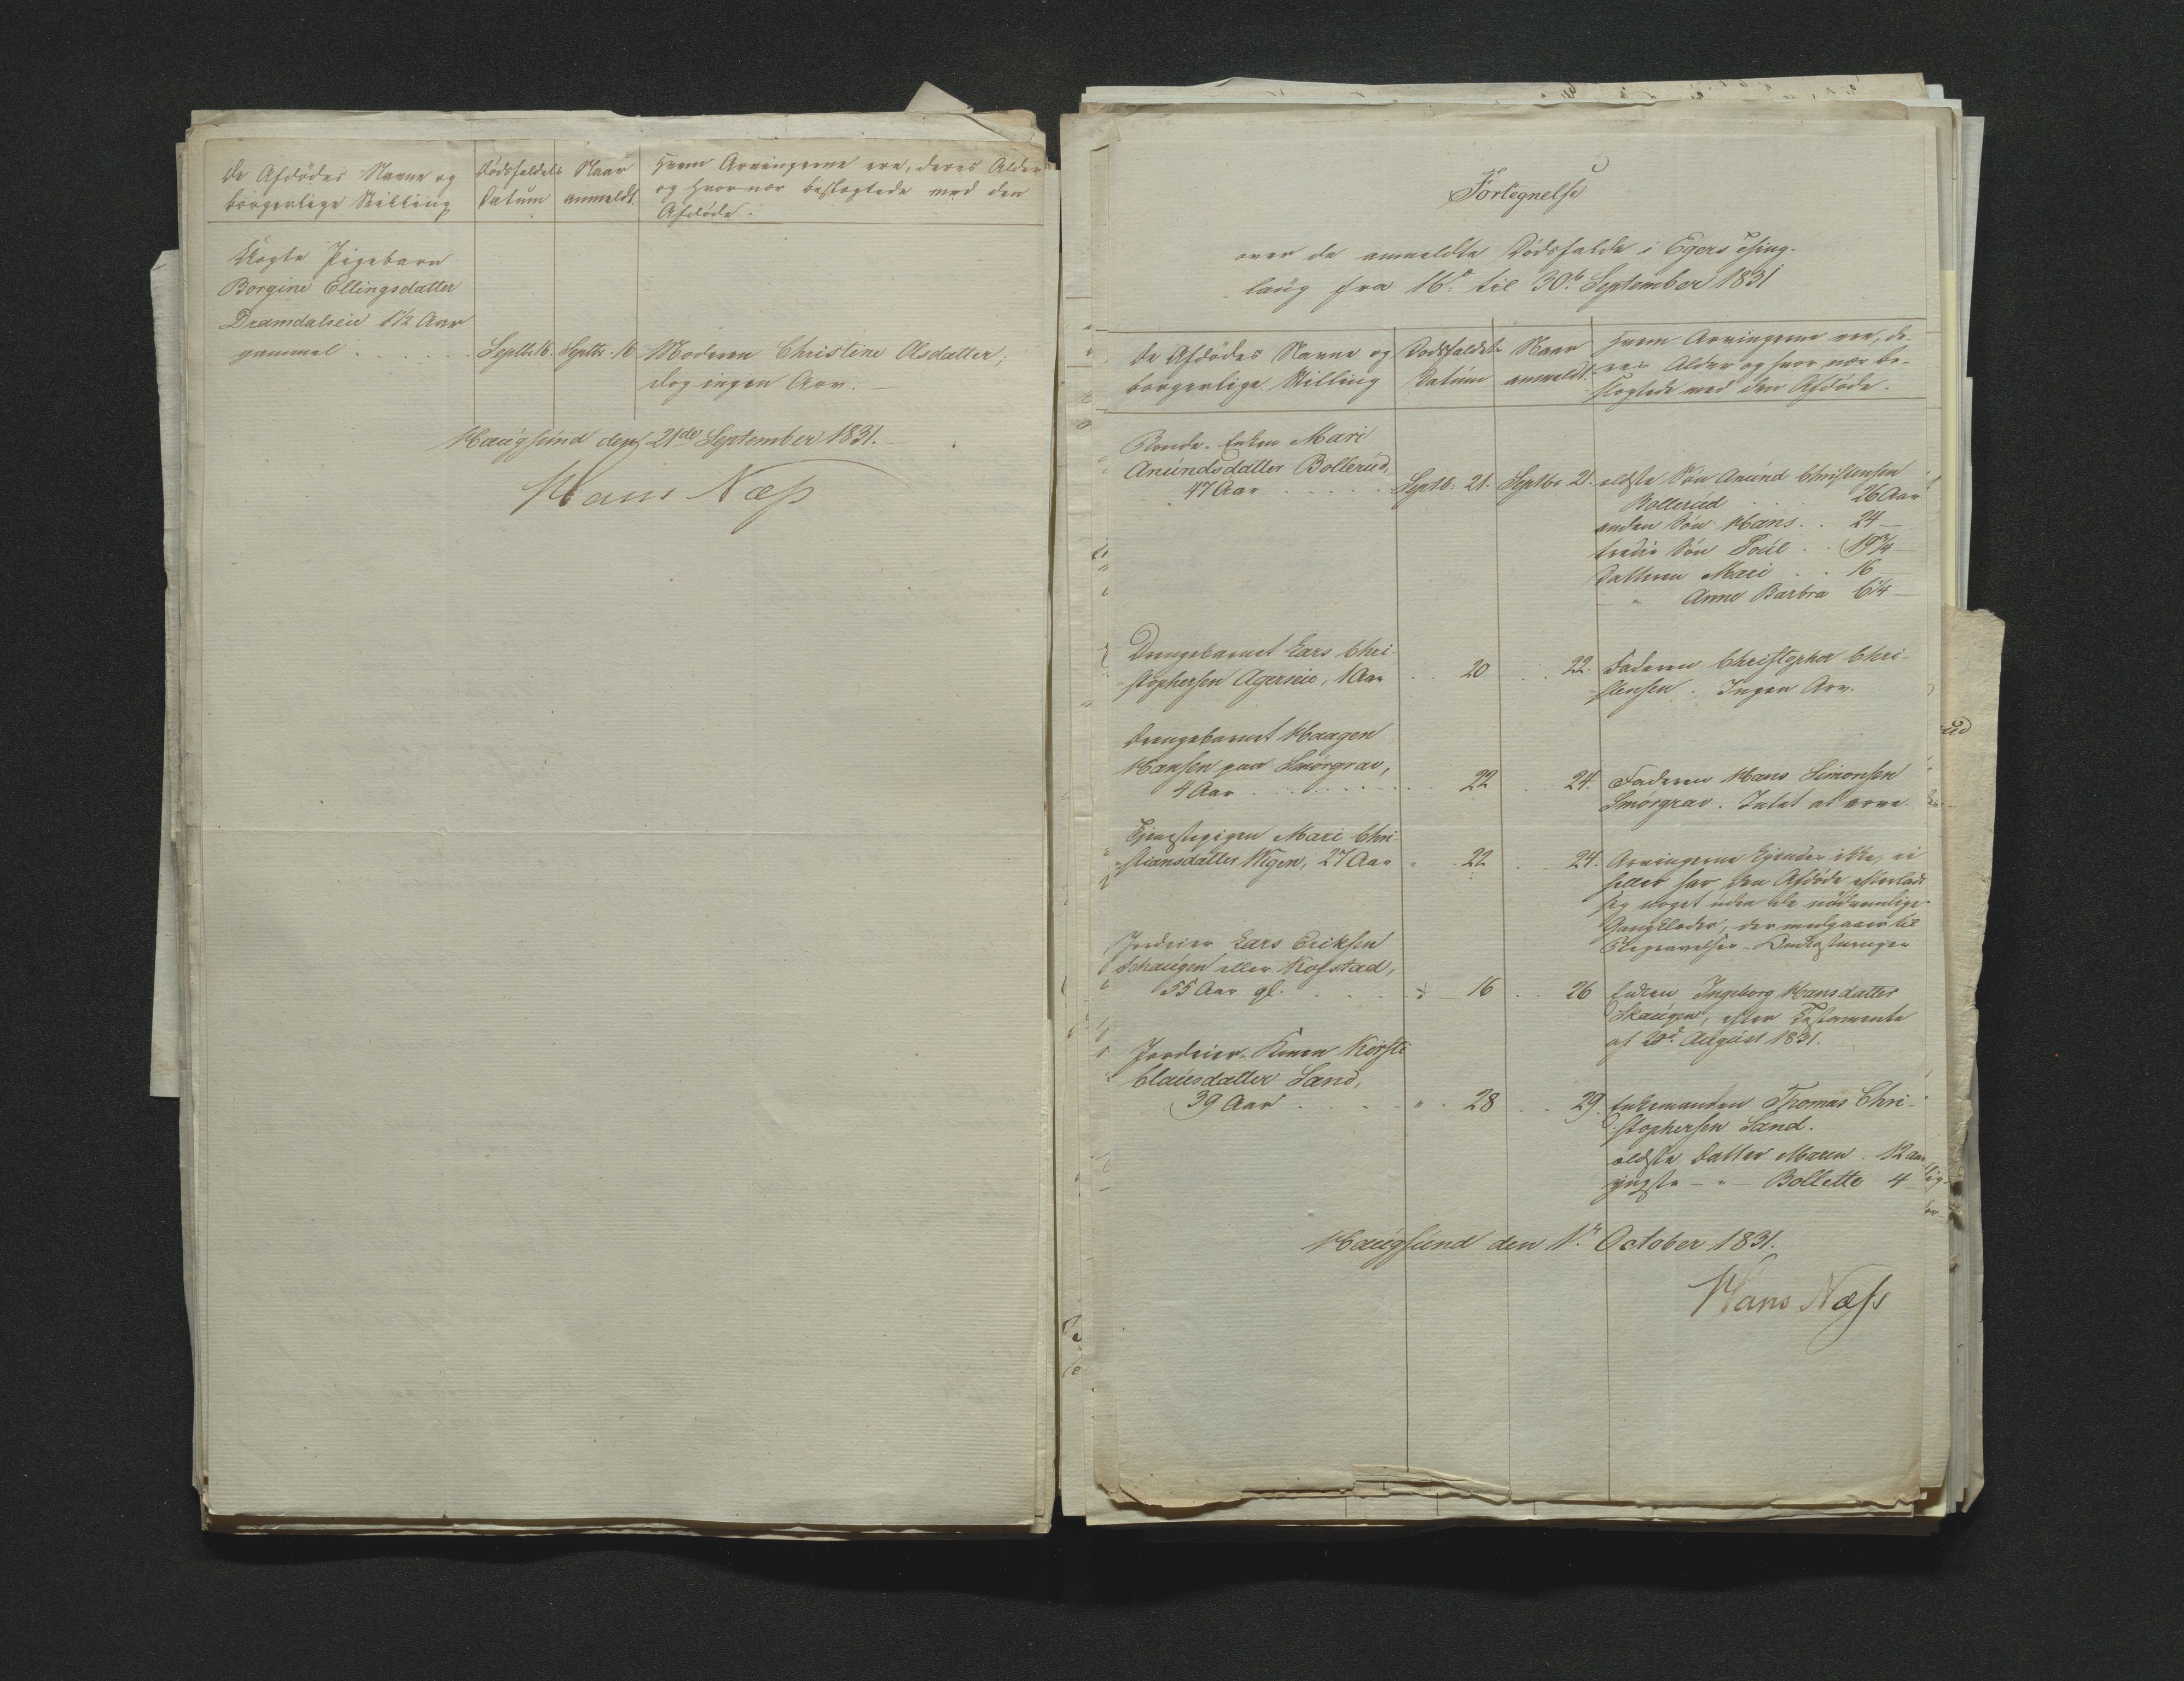 De Afdødes Navne og
borgerlige Stilling
Dødsfaldets
Datum
Naar
anmeldt.
Hvem Arvingerne ere, deres Alder
og hvor nær beslægtede med den
Afdøde.
Pigebarn
Borgine Ellingsdatter
Dramdalseie 1½ Aar
gammel . . . . . Septbr. 16. Septbr. 16 Moderen Christine Olsdatter;
dog ingen Arv. —
Haugsund den 21de September 1831.
Hans Næss
Fortegnelse
over de anmeldte Dødsfalde i Egers Thing-
laug fra 16de til 30te September 1831
De Afdødes Navne og
borgerlige Stilling
Dødsfaldets
Datum
Naar
anmeldt.
Hvem Arvingerne ere, de-
res Alder og hvor nær be-
slægtede med den Afdøde.
Bonde-Enken Mari
Amundsdatter Bollerud,
47 Aar . . . . . Septb. 21. Septbr 21. ældste Søn Amund Christensen
Bollerud . . . 26 Aar
anden Søn Hans . . 24 —
tredie Søn Poul . . 19¾ —
Datteren Mari . . 16 —
" Anne Barbra 6¼ —
Drengebarnet Lars Chri-
stophersen Agerseie, 1 Aar . . 20 . . 22. Faderen Christopher Chri-
stensen. Ingen Arv.
Drengebarnet Haagen
Hansen paa Smörgrav,
4 Aar . . . . . . 22 . 24. Faderen Hans Simonsen
Smörgrav. Intet at arve.
Tjenestepigen Mari Chri-
stiansdatter Wigen, 27 Aar " 22 . 24. Arvingerne kjendes ikke, ei
heller har den Afdøde efterladt
sig noget uden de nødvendige
Gangklæder, der medgaaer til
Begravelses-Omkostninger
Jordeier Lars Ericksen
Schaugen eller Kofstad,
55 Aar gl. . . . . " 16 . . 26 Enken Ingeborg Hansdatter
Skaugen, efter Testamente
af 20d August 1831.
Jordeier-Konen Kirsti
Clausdatter Sand,
39 Aar . . . . " . 28 . . 29. Enkemanden Thomas Chri-
stophersen Sand.
ældste Datter Maren . 12 Aar
yngste — " — Bollette 4
Haugsund den 1te October 1831.
Hans Næss